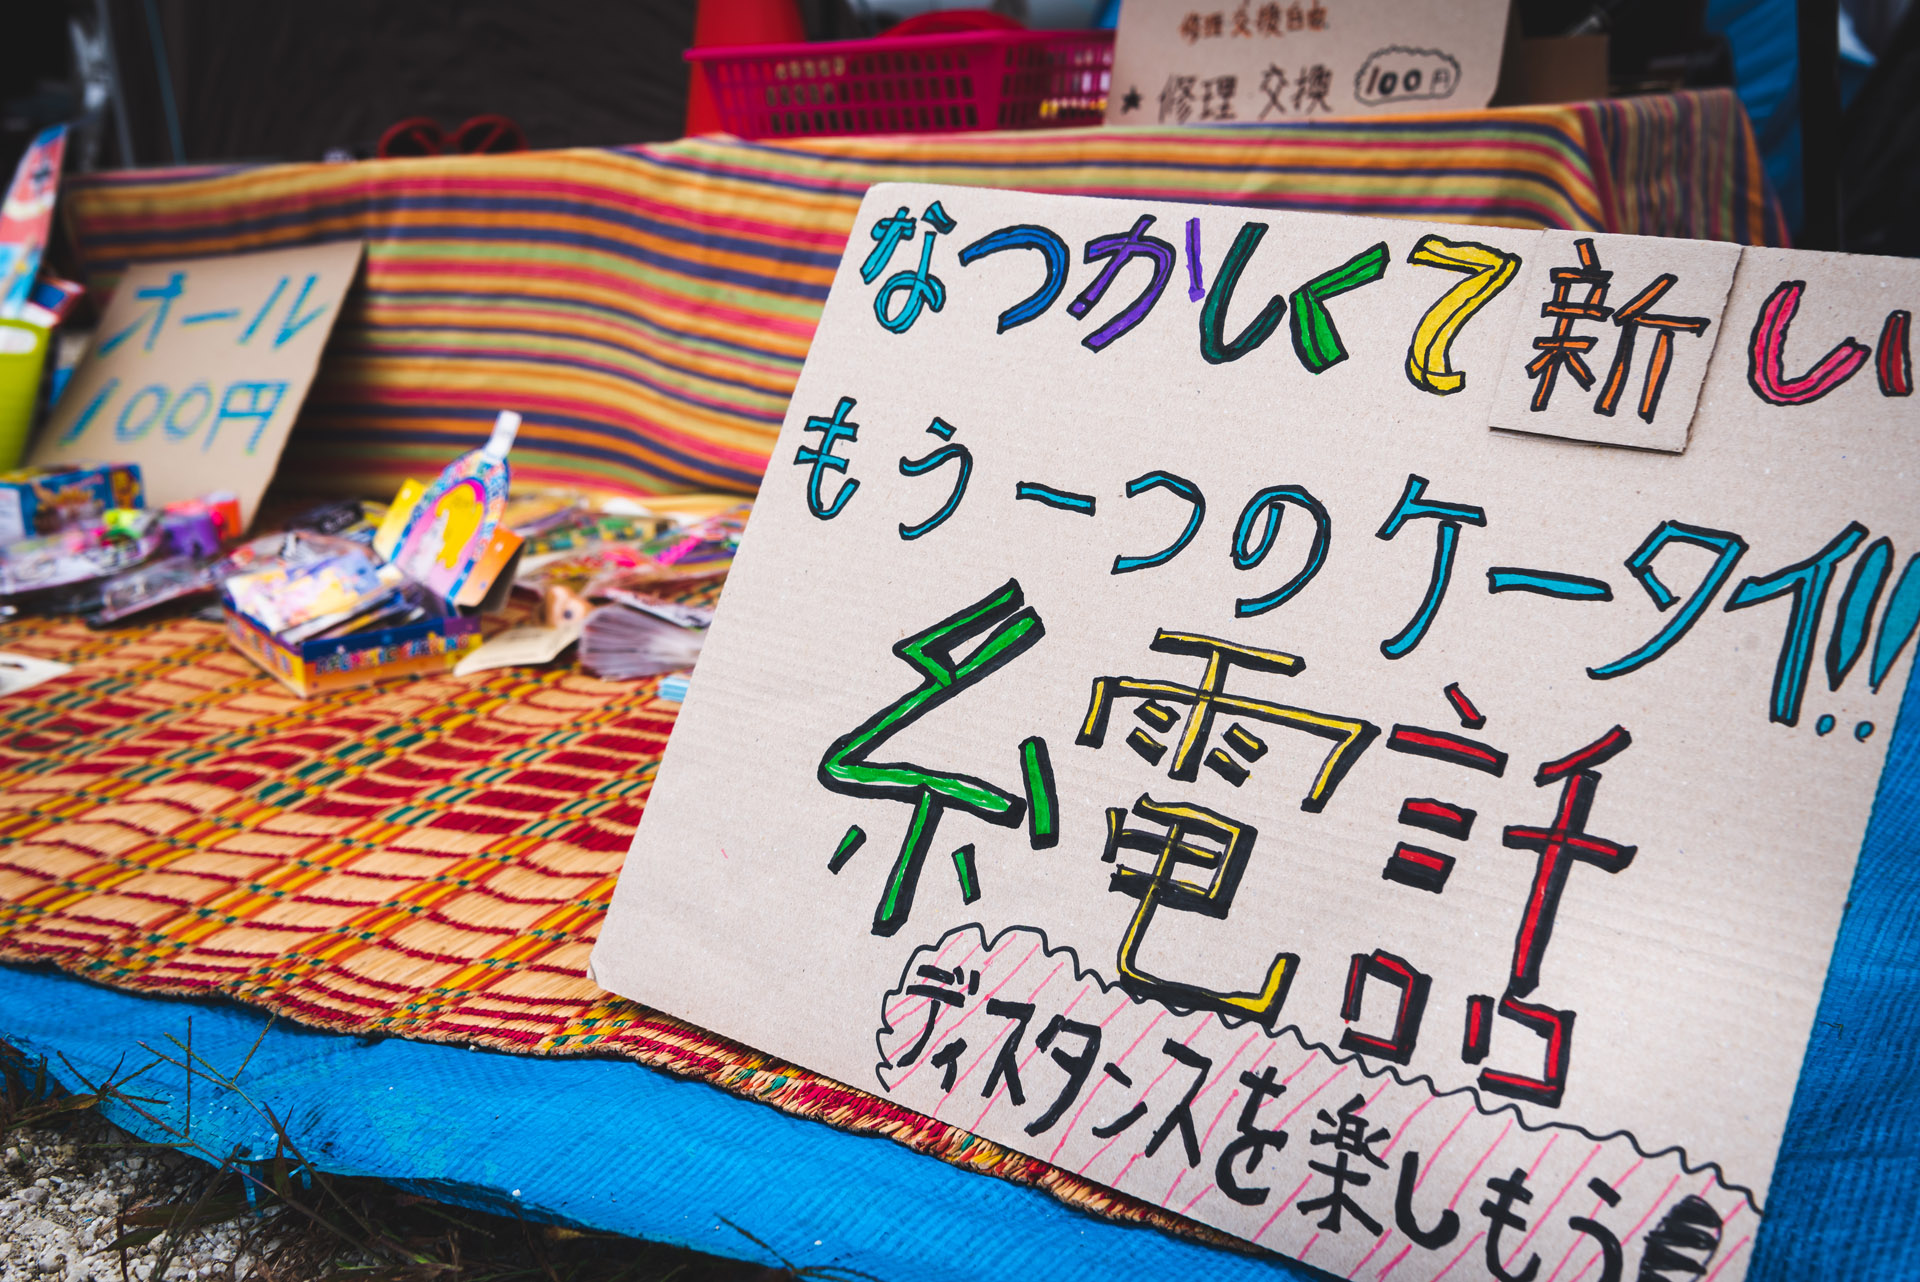 修理交換自由
★修理 交換 100円
オール
100円
なつかしくて新しい
もう一つのケータイ!!
糸電話
ディスタンスを楽しもう